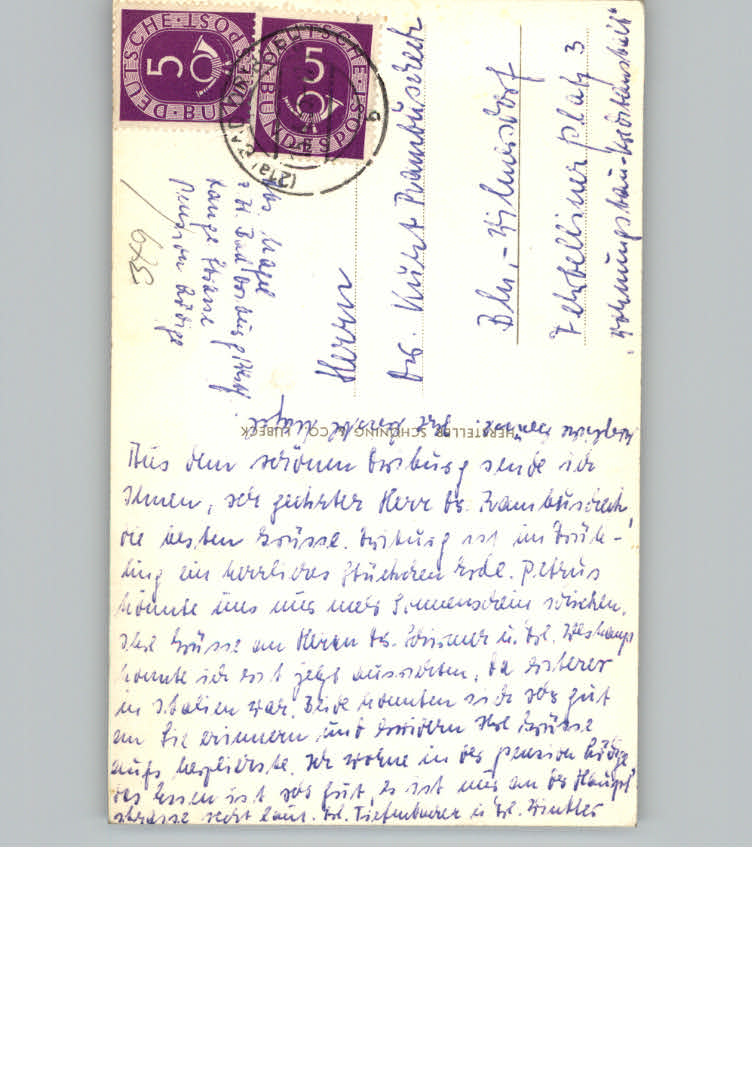 DEUTSCHE BUNDESPOST
5
DEUTSCHE BUNDESPOST
5
(21a) BAD DRIBURG
349
z. Zt. Bad Driburg (Westf.)
Lange Strasse
Pension Rüdige
Herrn
Dr. Kurt Rambuscheck
Bln.-Wilmersdorf
Fehrbelliner Platz 3
"Wohnungsbau-Kreditanstalt"
HERSTELLER SCHÖNING & CO., LÜBECK
Aus dem schönen Driburg sende ich
Ihnen, sehr geehrter Herr Dr. Rambuscheck,
die besten Grüsse. Driburg ist im Früh-
ling ein herrliches Stückchen Erde. Petrus
könnte uns nur mehr Sonnenschein schicken.
Ihre Grüsse an Herrn Dr. u. Frl.
konnte ich erst jetzt ausrichten, da ersterer
in Italien war. Beide konnten sich sehr gut
an Sie erinnern und erwidern Ihre Grüsse
aufs herzlichste. Ich wohne in der Pension Rüdige
das Essen ist sehr gut, es ist nur an der Haupt-
strasse recht laut. Frl. Tiefenbacher u. Frl. Winkler